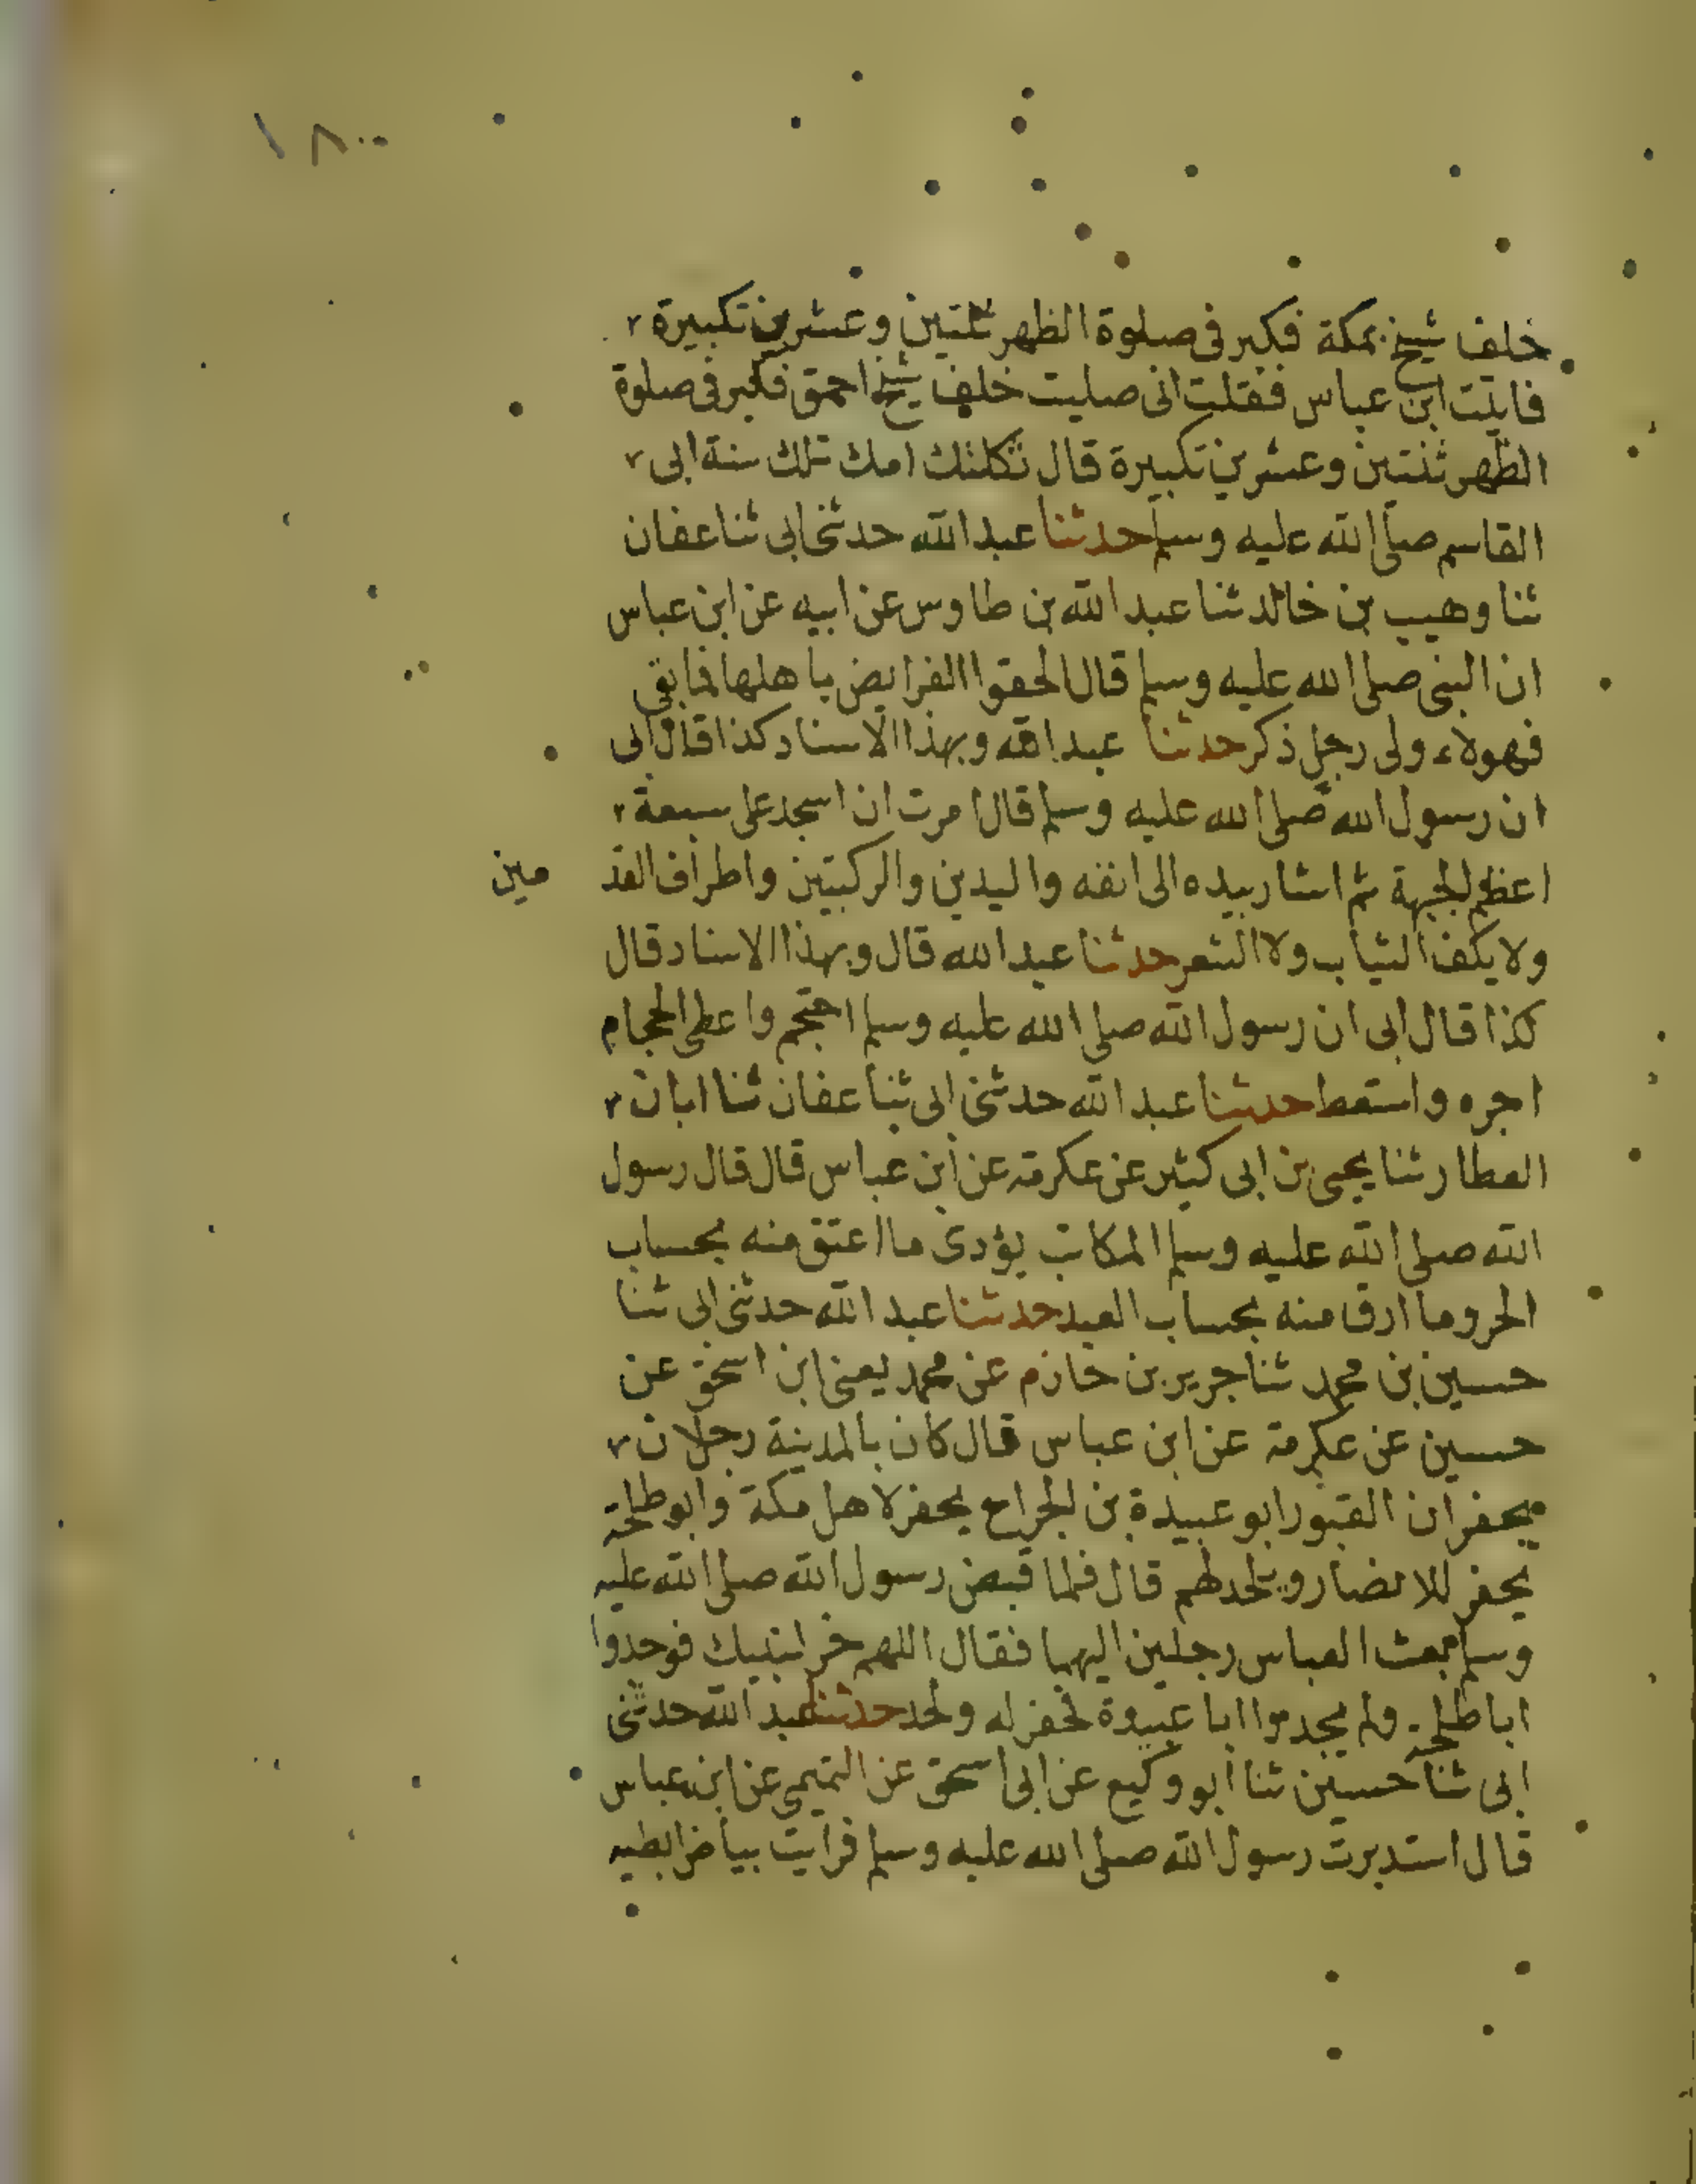 ١٨٠٠
خلف شيخ بمكة فكبر فى صلوة الظهر ثنتين وعشرين تكبيرة
فاتيت ابن عباس فقلت انى صليت خلف شيخ احمق فكبر فى صلوة
الظهر ثنتين وعشرين تكبيرة قال ثكلتك امك تلك سنة ابى
القاسم صلى الله عليه وسلم حدثنا عبد الله حدثنى ابى ثنا عفان
ثنا وهيب بن خالد ثنا عبد الله بن طاوس عن ابيه عن ابن عباس
ان النبى صلى الله عليه وسلم قال الحقوا الفرايض باهلها فما بقى
فهولاء ولى رجل ذكر حدثنا عبد الله وبهذا الاسناد كذا قال ابى
ان رسول الله صلى الله عليه وسلم قال امرت ان اسجد على سبعة
اعظم الجبهة ثم اشار بيده الى انفه واليدين والركبتين واطراف القد مين
ولا يكف الثياب ولا الشعر حدثنا عبد الله قال وبهذا الاسناد قال
كذا قال ابى ان رسول الله صلى الله عليه وسلم احتجم واعطى الحجام
اجره واستعط حدثنا عبد الله حدثنى ابى ثنا عفان ثنا ابان
العطار ثنا يحيى بن ابى كثير عن عكرمة عن ابن عباس قال قال رسول
الله صلى الله عليه وسلم المكاتب يؤدى ما اعتق منه بحساب
الحر وما ارق منه بحساب العبد حدثنا عبد الله حدثنى ابى ثنا
حسين بن محمد ثنا جرير بن حازم عن محمد يعنى ابن اسحق عن
حسين عن عكرمة عن ابن عباس قال كان بالمدينة رجلان
يحفران القبور ابو عبيدة بن الجراح يحفر لاهل مكة وابو طلحة
يحفر للانصار ويلحد لهم قال فلما قبض رسول الله صلى الله عليه
وسلم بعث العباس رجلين اليهما فقال اللهم خر لنبيك فوجدوا
ابا طلحة ولم يجدوا ابا عبيدة فحفر له ولحد حدثنا عبد الله حدثنى
ابى ثنا حسين ثنا ابو وكيع عن ابى اسحق عن التميمى عن ابن عباس
قال استدبرت رسول الله صلى الله عليه وسلم فرايت بياض ابطيه